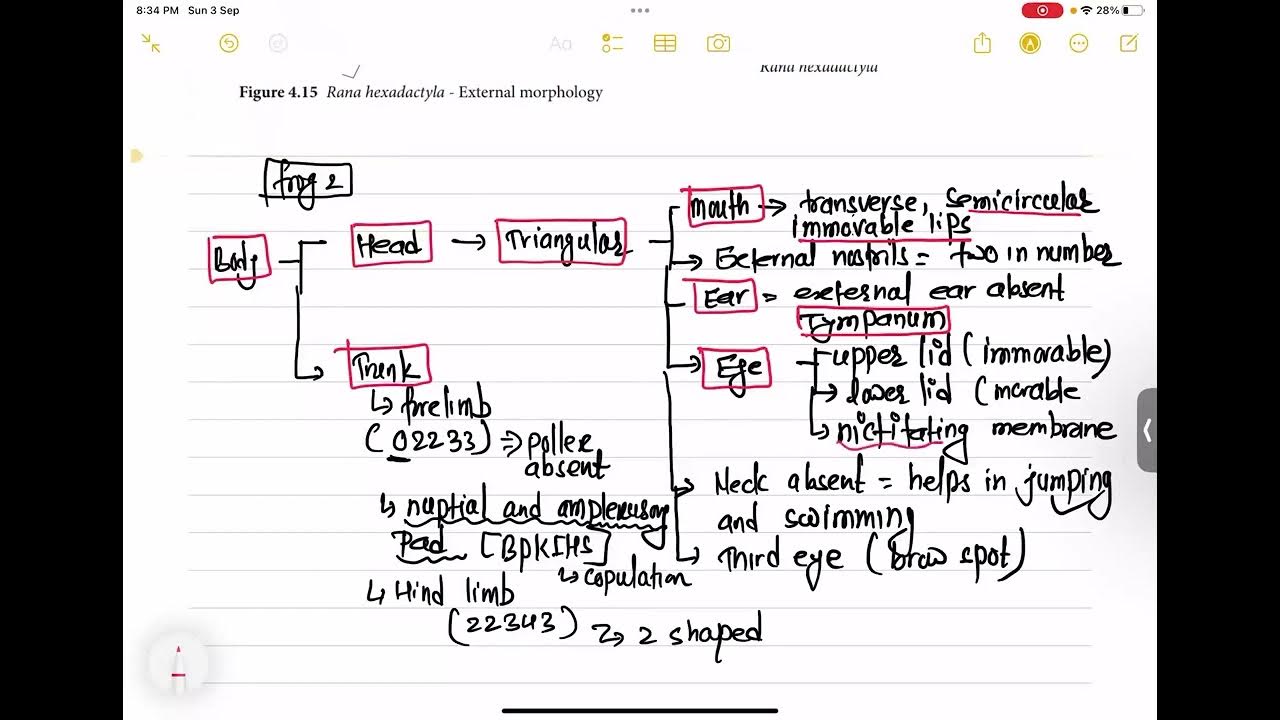 8:34 PM Sun 3 Sep
28%
Aa
Rana hexadactyla
Figure 4.15 Rana hexadactyla - External morphology
frog 2
Body
Head → Triangular
mouth → transverse, semicircular
immovable lips
→ External nostrils = two in number
Ear = external ear absent
Tympanum
Eye
upper lid (immovable)
lower lid (movable
nictitating membrane
Neck absent = helps in jumping
and swimming
Third eye (brow spot)
Trunk
↳ forelimb
(02233) ⇒ pollex
absent
↳ nuptial and amplexusory
Pad [BPKIHS]
↳ copulation
↳ Hind limb
(22343) → 2 shaped